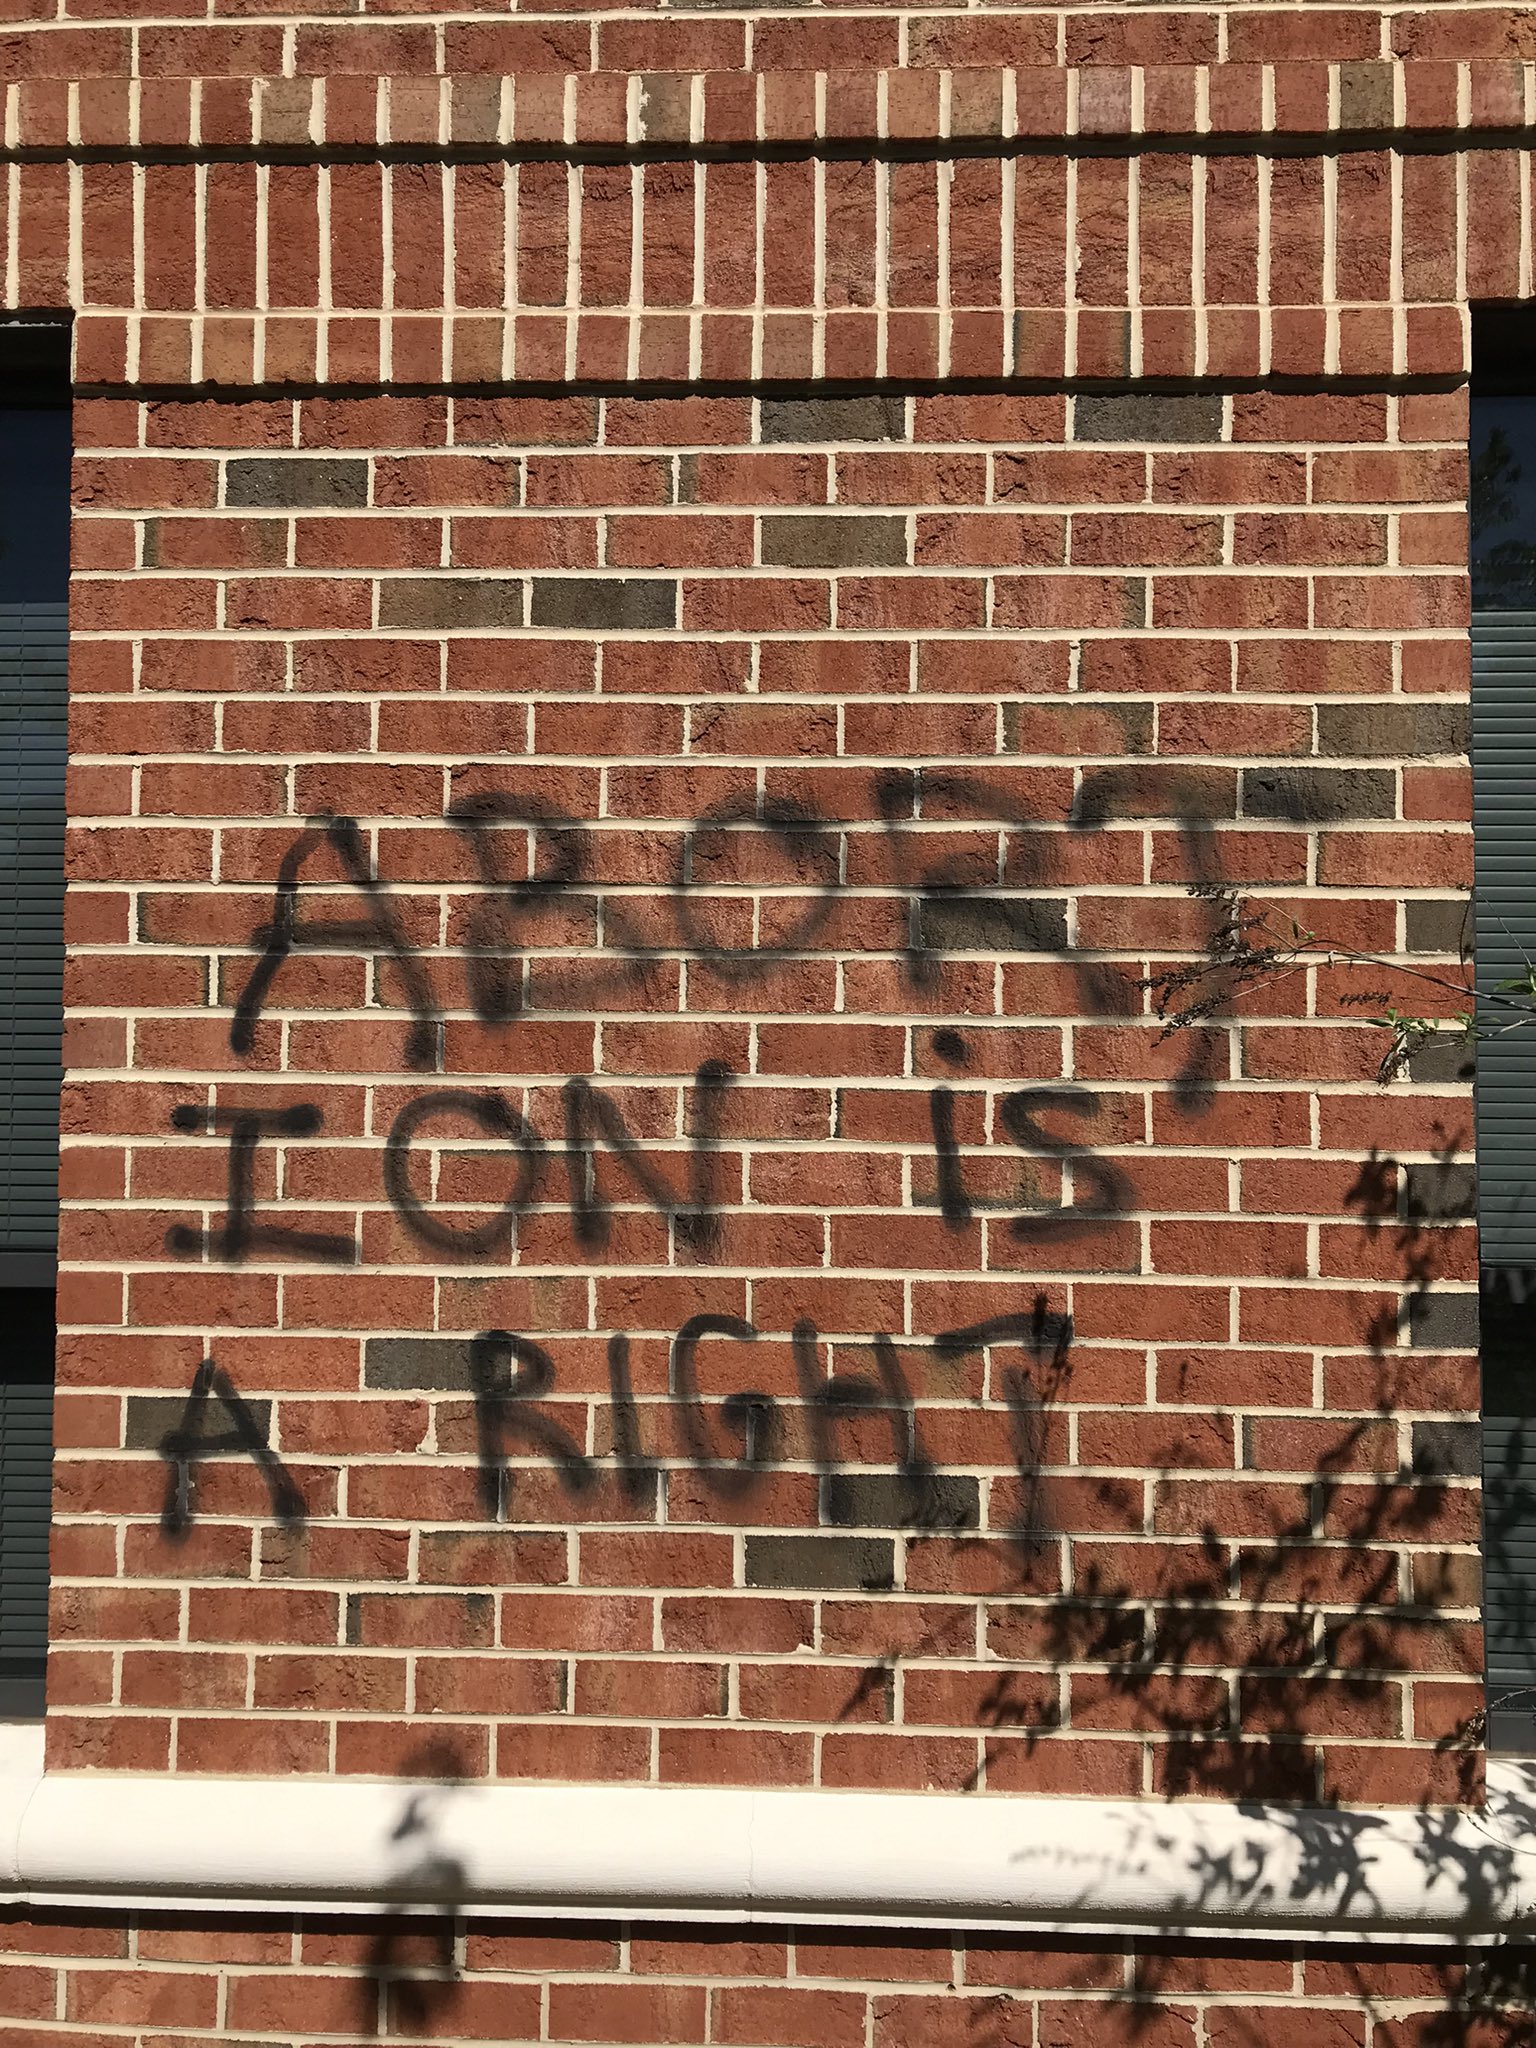 ABORT
ION is
A RIGHT